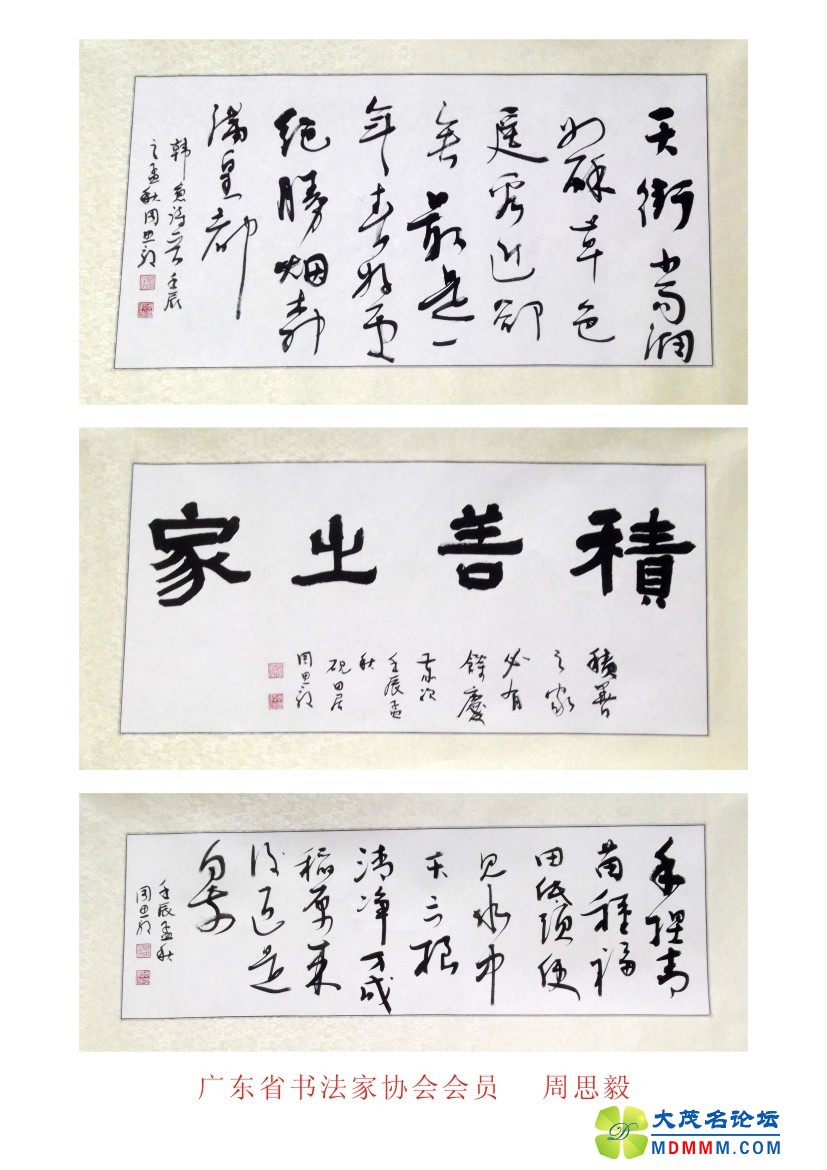 天街小雨潤
如酥草色
遥看近却
無最是一
年春好處
絕勝烟柳
滿皇都
韓愈詩一首 壬辰
之孟秋周思毅
積善之家
積善
之家
必有
餘慶
歲次
壬辰孟
秋
砚田居
周思毅
手捏青
苗種福
田低頭便
見水中
天六根
清净方成
稻原来
後退是
向前
壬辰孟秋
周思毅
广东省书法家协会会员 周思毅
大茂名论坛
MDMMM.COM